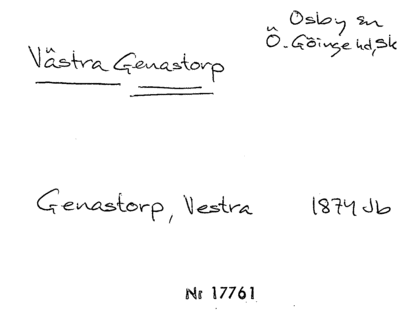 Osby sn
Västra Genastorp
Ö. Göinge hd, Sk
Genastorp, Vestra 1874 Jb
Nr 17761